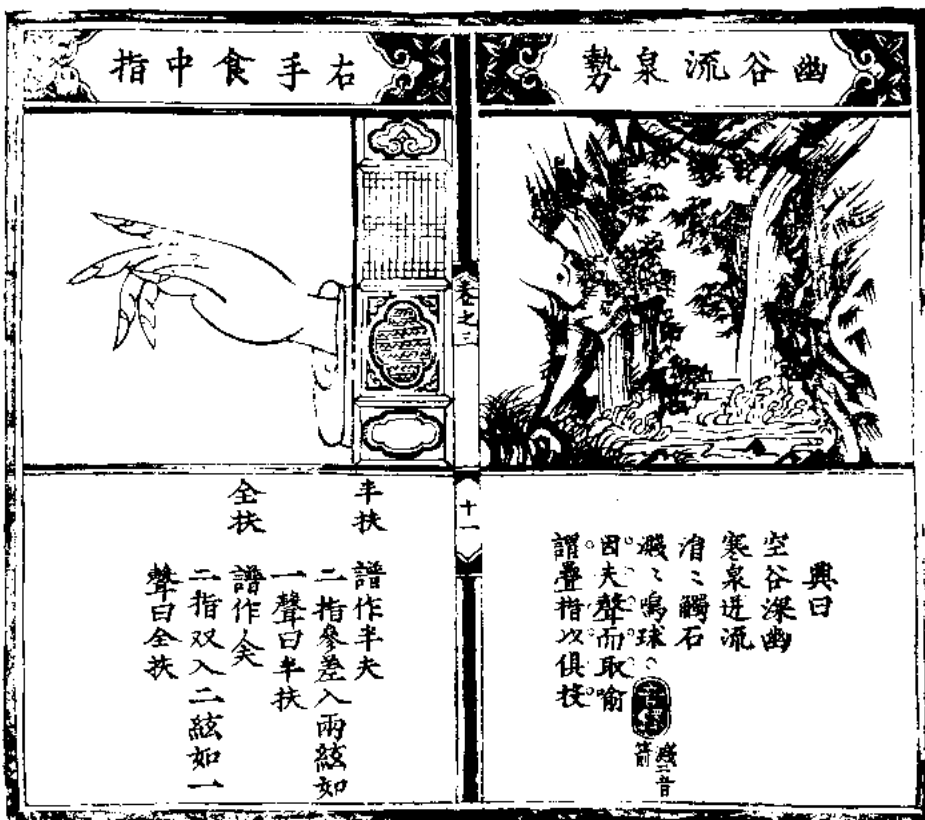 幽谷流泉勢
興曰
空谷深幽
寒泉迸流
涓〻觸石
濺〻鳴球〻
因夫聲而取喻
謂疊指以俱扙
濺音
箭
卷之三
十一
右手食中指
半扶
譜作半夫
二指參差入兩絃如
一聲曰半扶
全扶
譜作
二指双入二絃如一
聲曰全扶